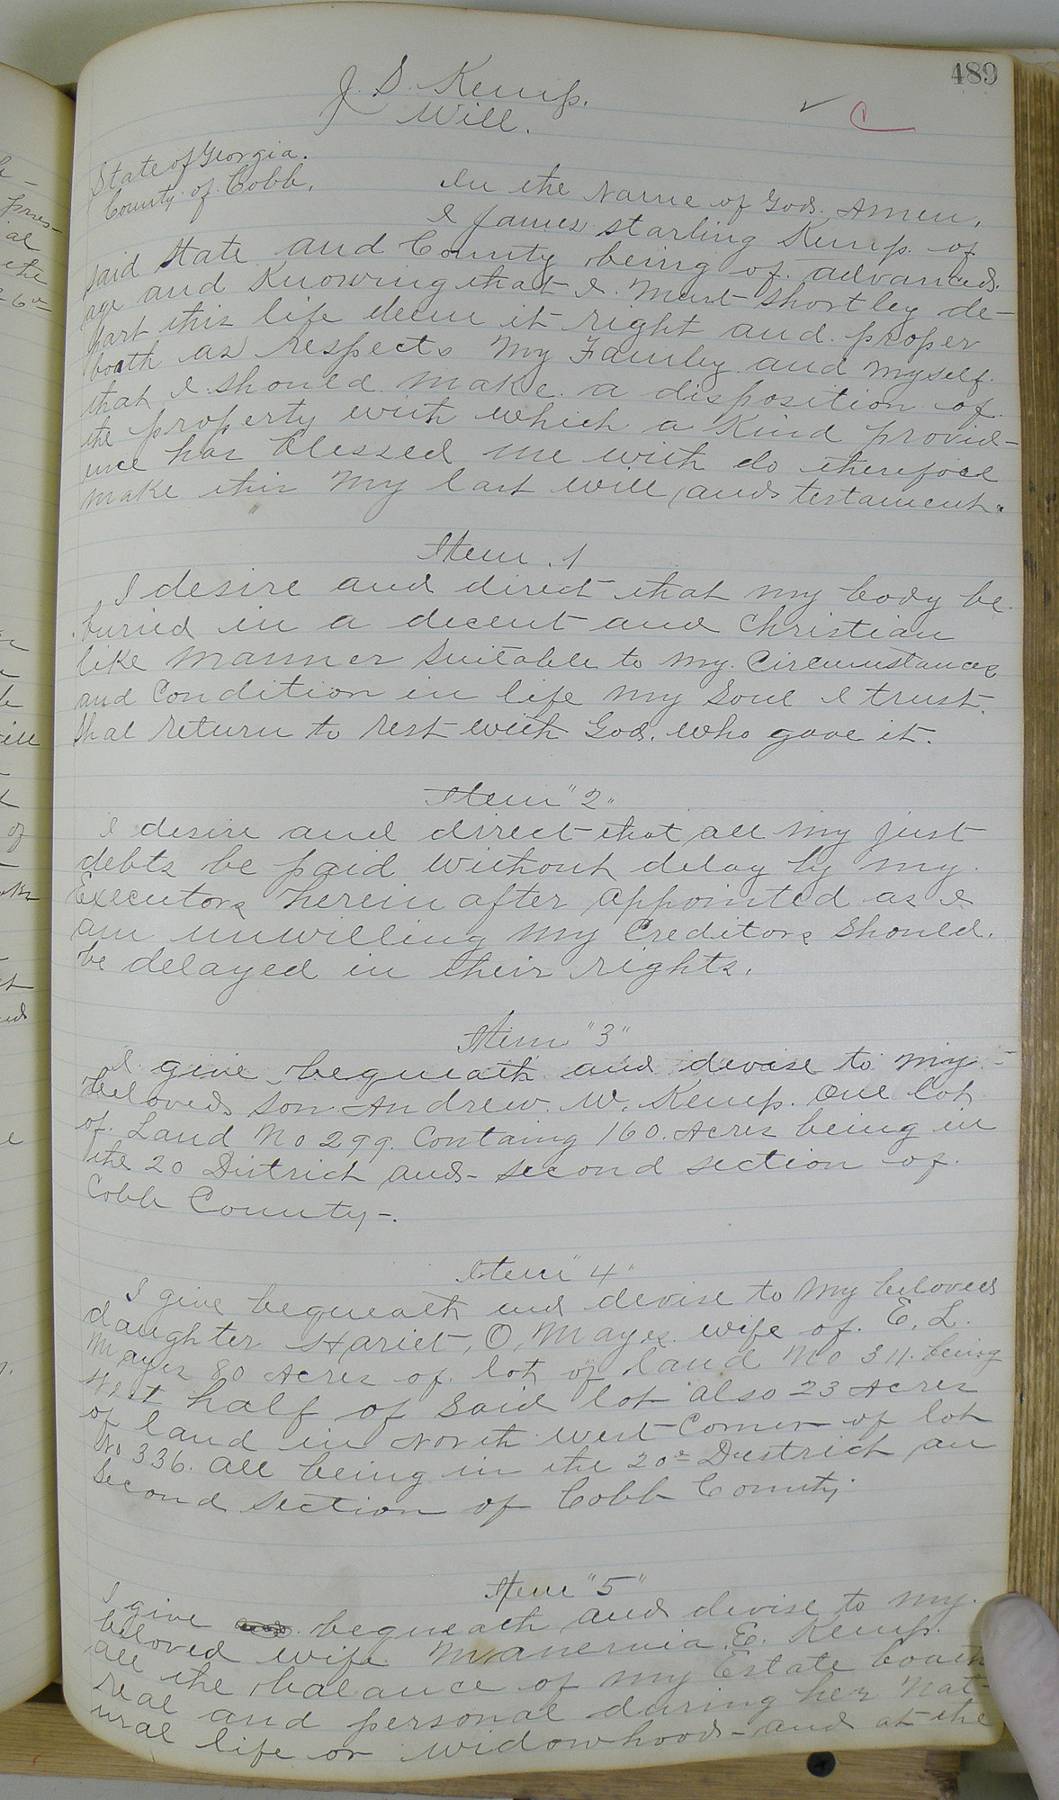 489
J. S. Kemp.
Will.
State of Georgia.
County of Cobb.
In the Name of God. Amen,
I James Starling Kemp. of
said State and County being of advanced.
age and Knowing that I must Shortley de-
part this life deem it right and proper
boath as respects My Famley and myself.
that I should make a disposition of.
the property with which a Kind provid-
ence has blessed me with do therefore
make this My last will and testament.
Item. 1
I desire and direct that my body be.
buried in a decent and Christian
like manner Suitable to my. Circumstances
and Condition in life my Soul I trust.
Shal return to rest with God. who gave it.
Item "2"
I desire and direct that all my just
debts be paid without delay by my.
Executors herein after appointed as I
am unwilling my Creditors Should.
be delayed in their rights.
Item "3"
I. give, bequeath and devise to my-
beloved Son Andrew. W. Kemp. One lot
of. Land No 299. Containg 160. Acres being in
the 20 District and second section of.
Cobb County-.
Item "4"
I give bequeath and devise to My beloved
daughter Hariet, O, Mayes wife of. E. L.
Mayes 80 Acres of. lot of land No 311. being
West half of Said lot also 23 Acres
of land in North west Corner of lot
No 336. all being in the 20th Districh an
Second Section of Cobb County.
Item "5"
I give bequeath and devise to my.
beloved wife Manervia. E. Kemp.
all the balance of my Estate boath
real and personal during her Nat-
ural life or widowhood- and at the